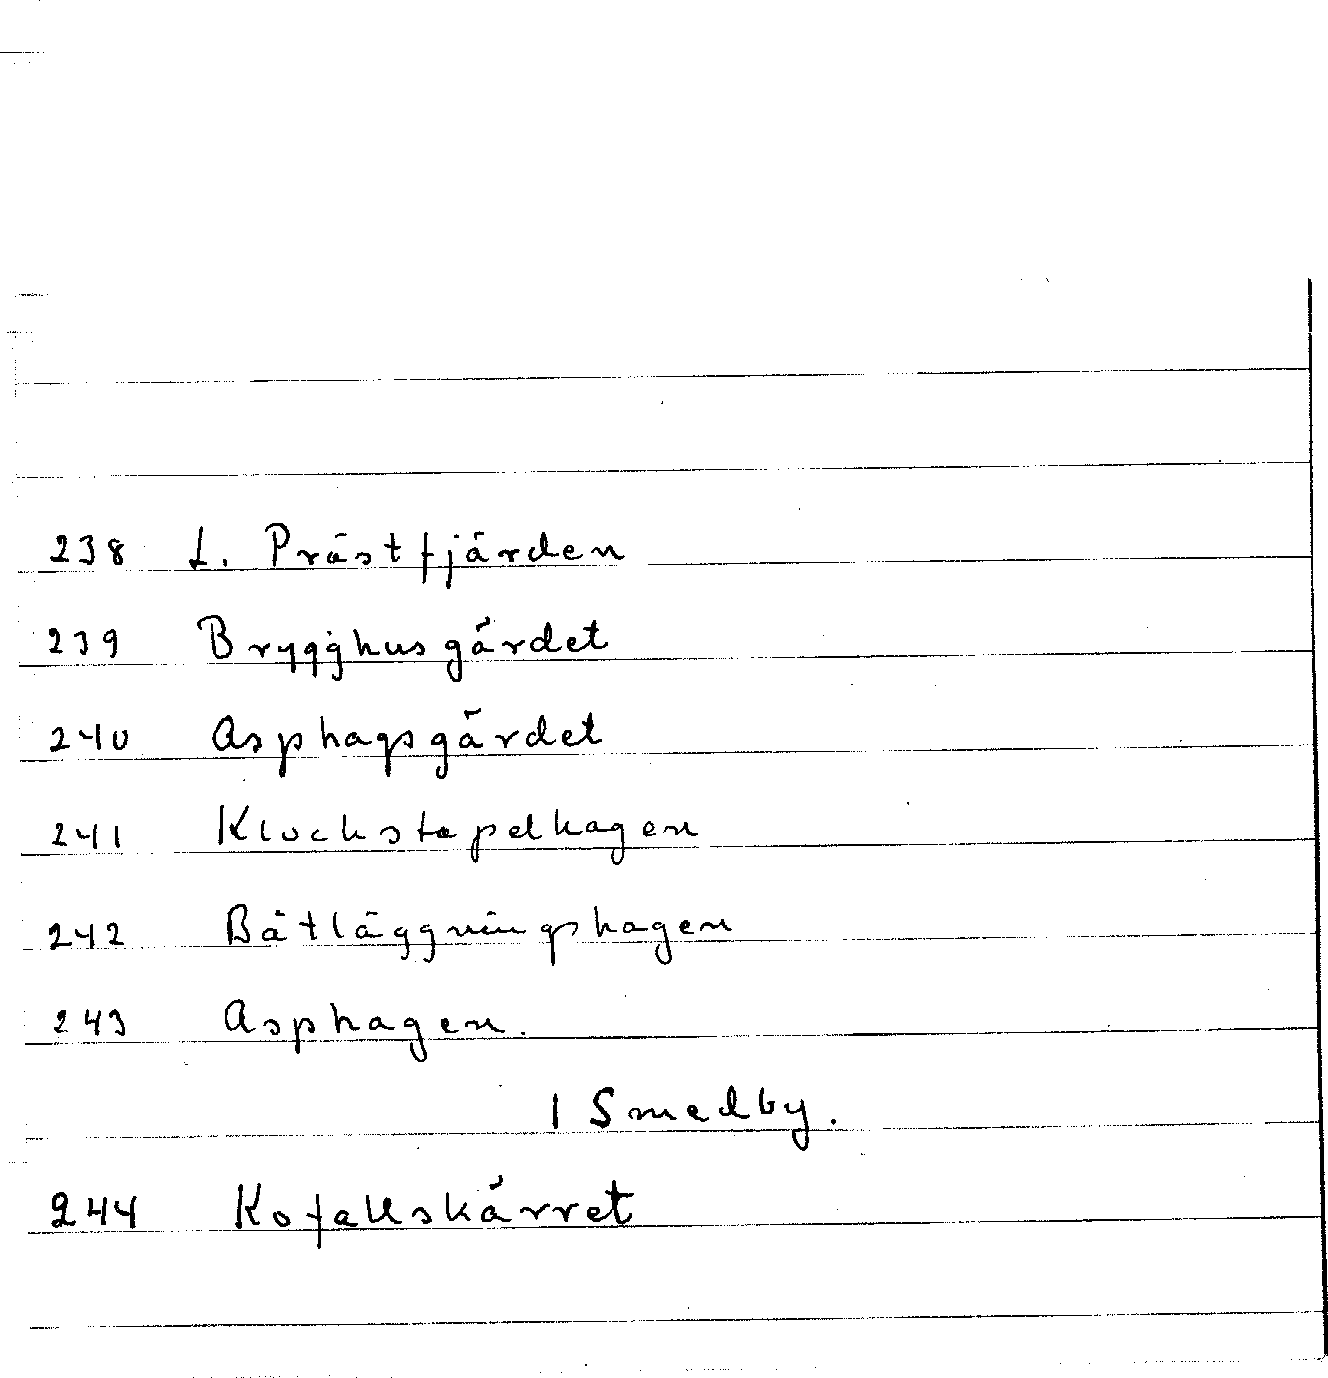 238 L. Prästfjärden
239 Brygghusgärdet
240 Asphagsgärdet
241 Klockstapelhagen
242 Båtläggningshagen
243 Asphagen.
I Smedby.
244 Kofallskärret